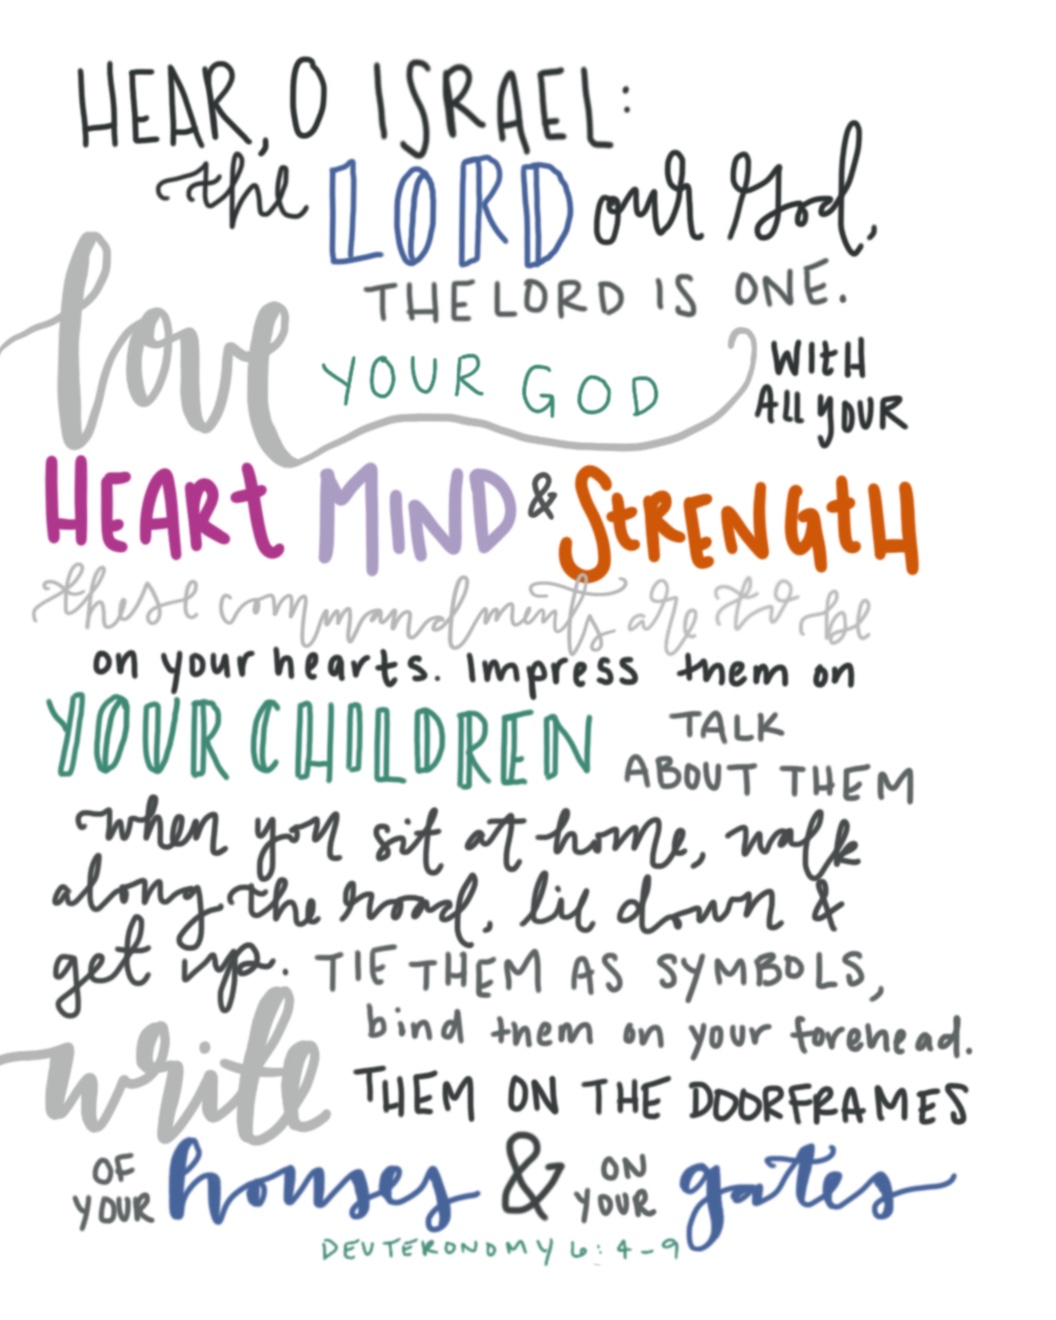 HEAR, O ISRAEL:
the LORD our God,
THE LORD IS ONE.
love YOUR GOD WITH
ALL YOUR
HEART MIND & STRENGTH
these commandments are to be
on your hearts. Impress them on
YOUR CHILDREN TALK
ABOUT THEM
when you sit at home, walk
along the road, lie down &
get up. TIE THEM AS SYMBOLS,
bind them on your forehead.
write THEM ON THE DOORFRAMES
OF YOUR houses & ON YOUR gates
DEUTERONOMY 6:4-9